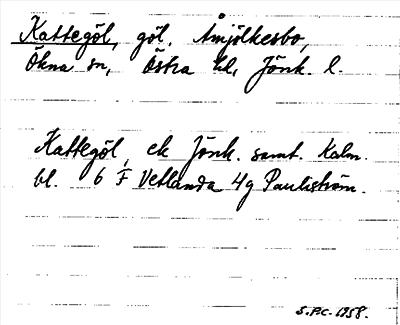 Kattegöl, göl, Åmjölkesbo,
Ökna sn, Östra hd, Jönk. l.
Kattegöl, ek Jönk. samt. Kalm.
bl. 6 F Vetlanda 4g Pauliström.
S.P.C. 1958.